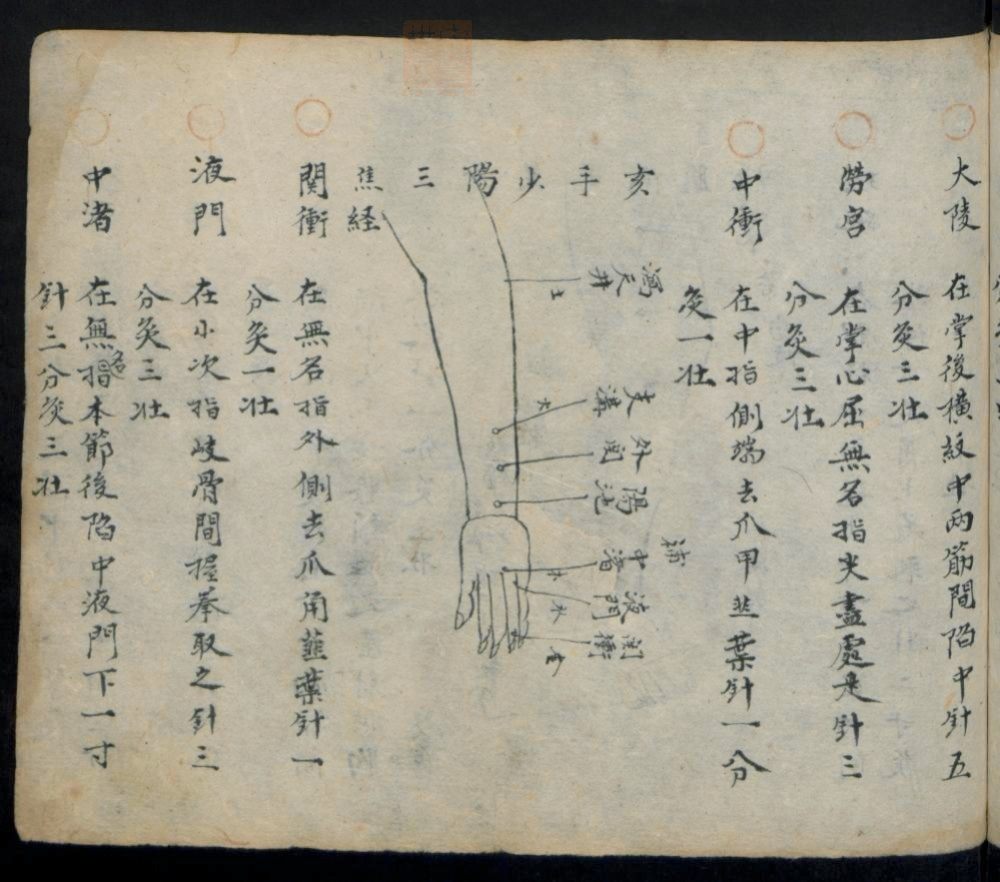 大陵
在掌後橫紋中两筋間陷中針五
分灸三壮
勞宫
在掌心屈無名指尖盡處是針三
分灸三壮
中衝
在中指側端去爪甲韭葉針一分
灸一壮
亥手少陽三焦経
瀉
天井
土
支溝
火
外関
陽池
補
中渚
木
液門
水
関衝
金
関衝
在無名指外側去爪角韮葉針一
分灸一壮
液門
在小次指岐骨間握拳取之針三
分灸三壮
中渚
在無名指本節後陷中液門下一寸
針三分灸三壮